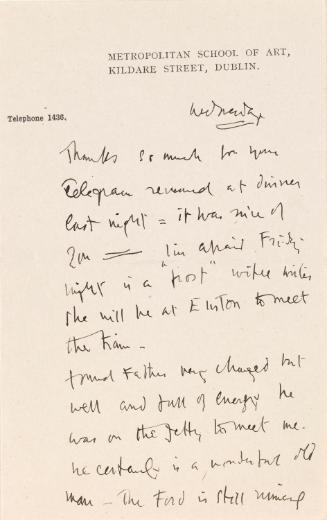 METROPOLITAN SCHOOL OF ART,
KILDARE STREET, DUBLIN.
Telephone 1436.
Wednesday
Thanks so much for your
Telegram received at dinner
last night = it was nice of
you — I'm afraid Friday
night is a "frost" wifie writes
she will be at Euston to meet
the train —
found Father very changed but
well and full of energy he
was on the Jetty to meet me.
he certainly is a wonderful old
man — The Ford is still running